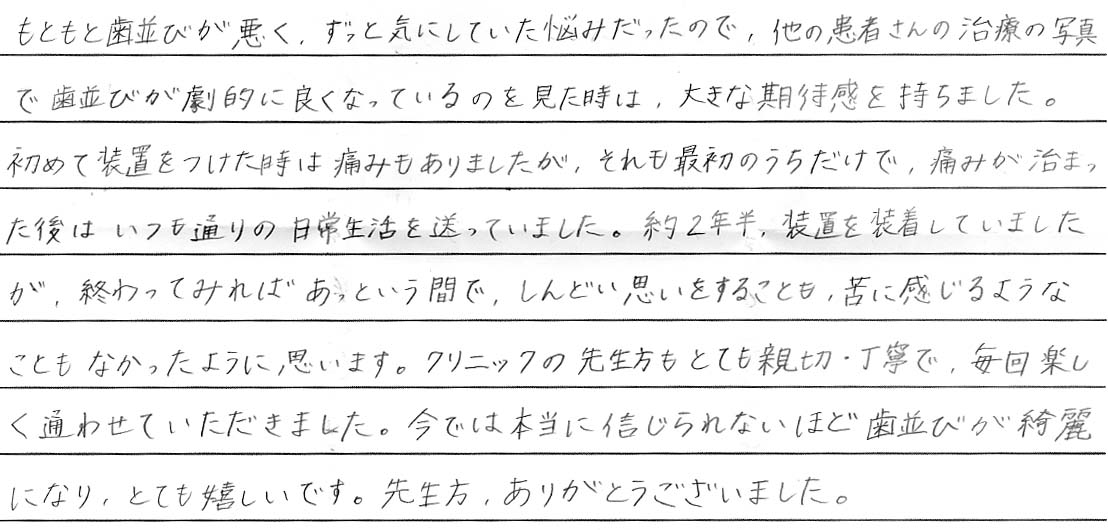 もともと歯並びが悪く，ずっと気にしていた悩みだったので，他の患者さんの治療の写真
で歯並びが劇的に良くなっているのを見た時は，大きな期待感を持ちました。
初めて装置をつけた時は痛みもありましたが，それも最初のうちだけで，痛みが治まっ
た後はいつも通りの日常生活を送っていました。約2年半，装置を装着していました
が，終わってみればあっという間で，しんどい思いをすることも，苦に感じるような
こともなかったように思います。クリニックの先生方もとても親切・丁寧で，毎回楽し
く通わせていただきました。今では本当に信じられないほど歯並びが綺麗
になり，とても嬉しいです。先生方，ありがとうございました。